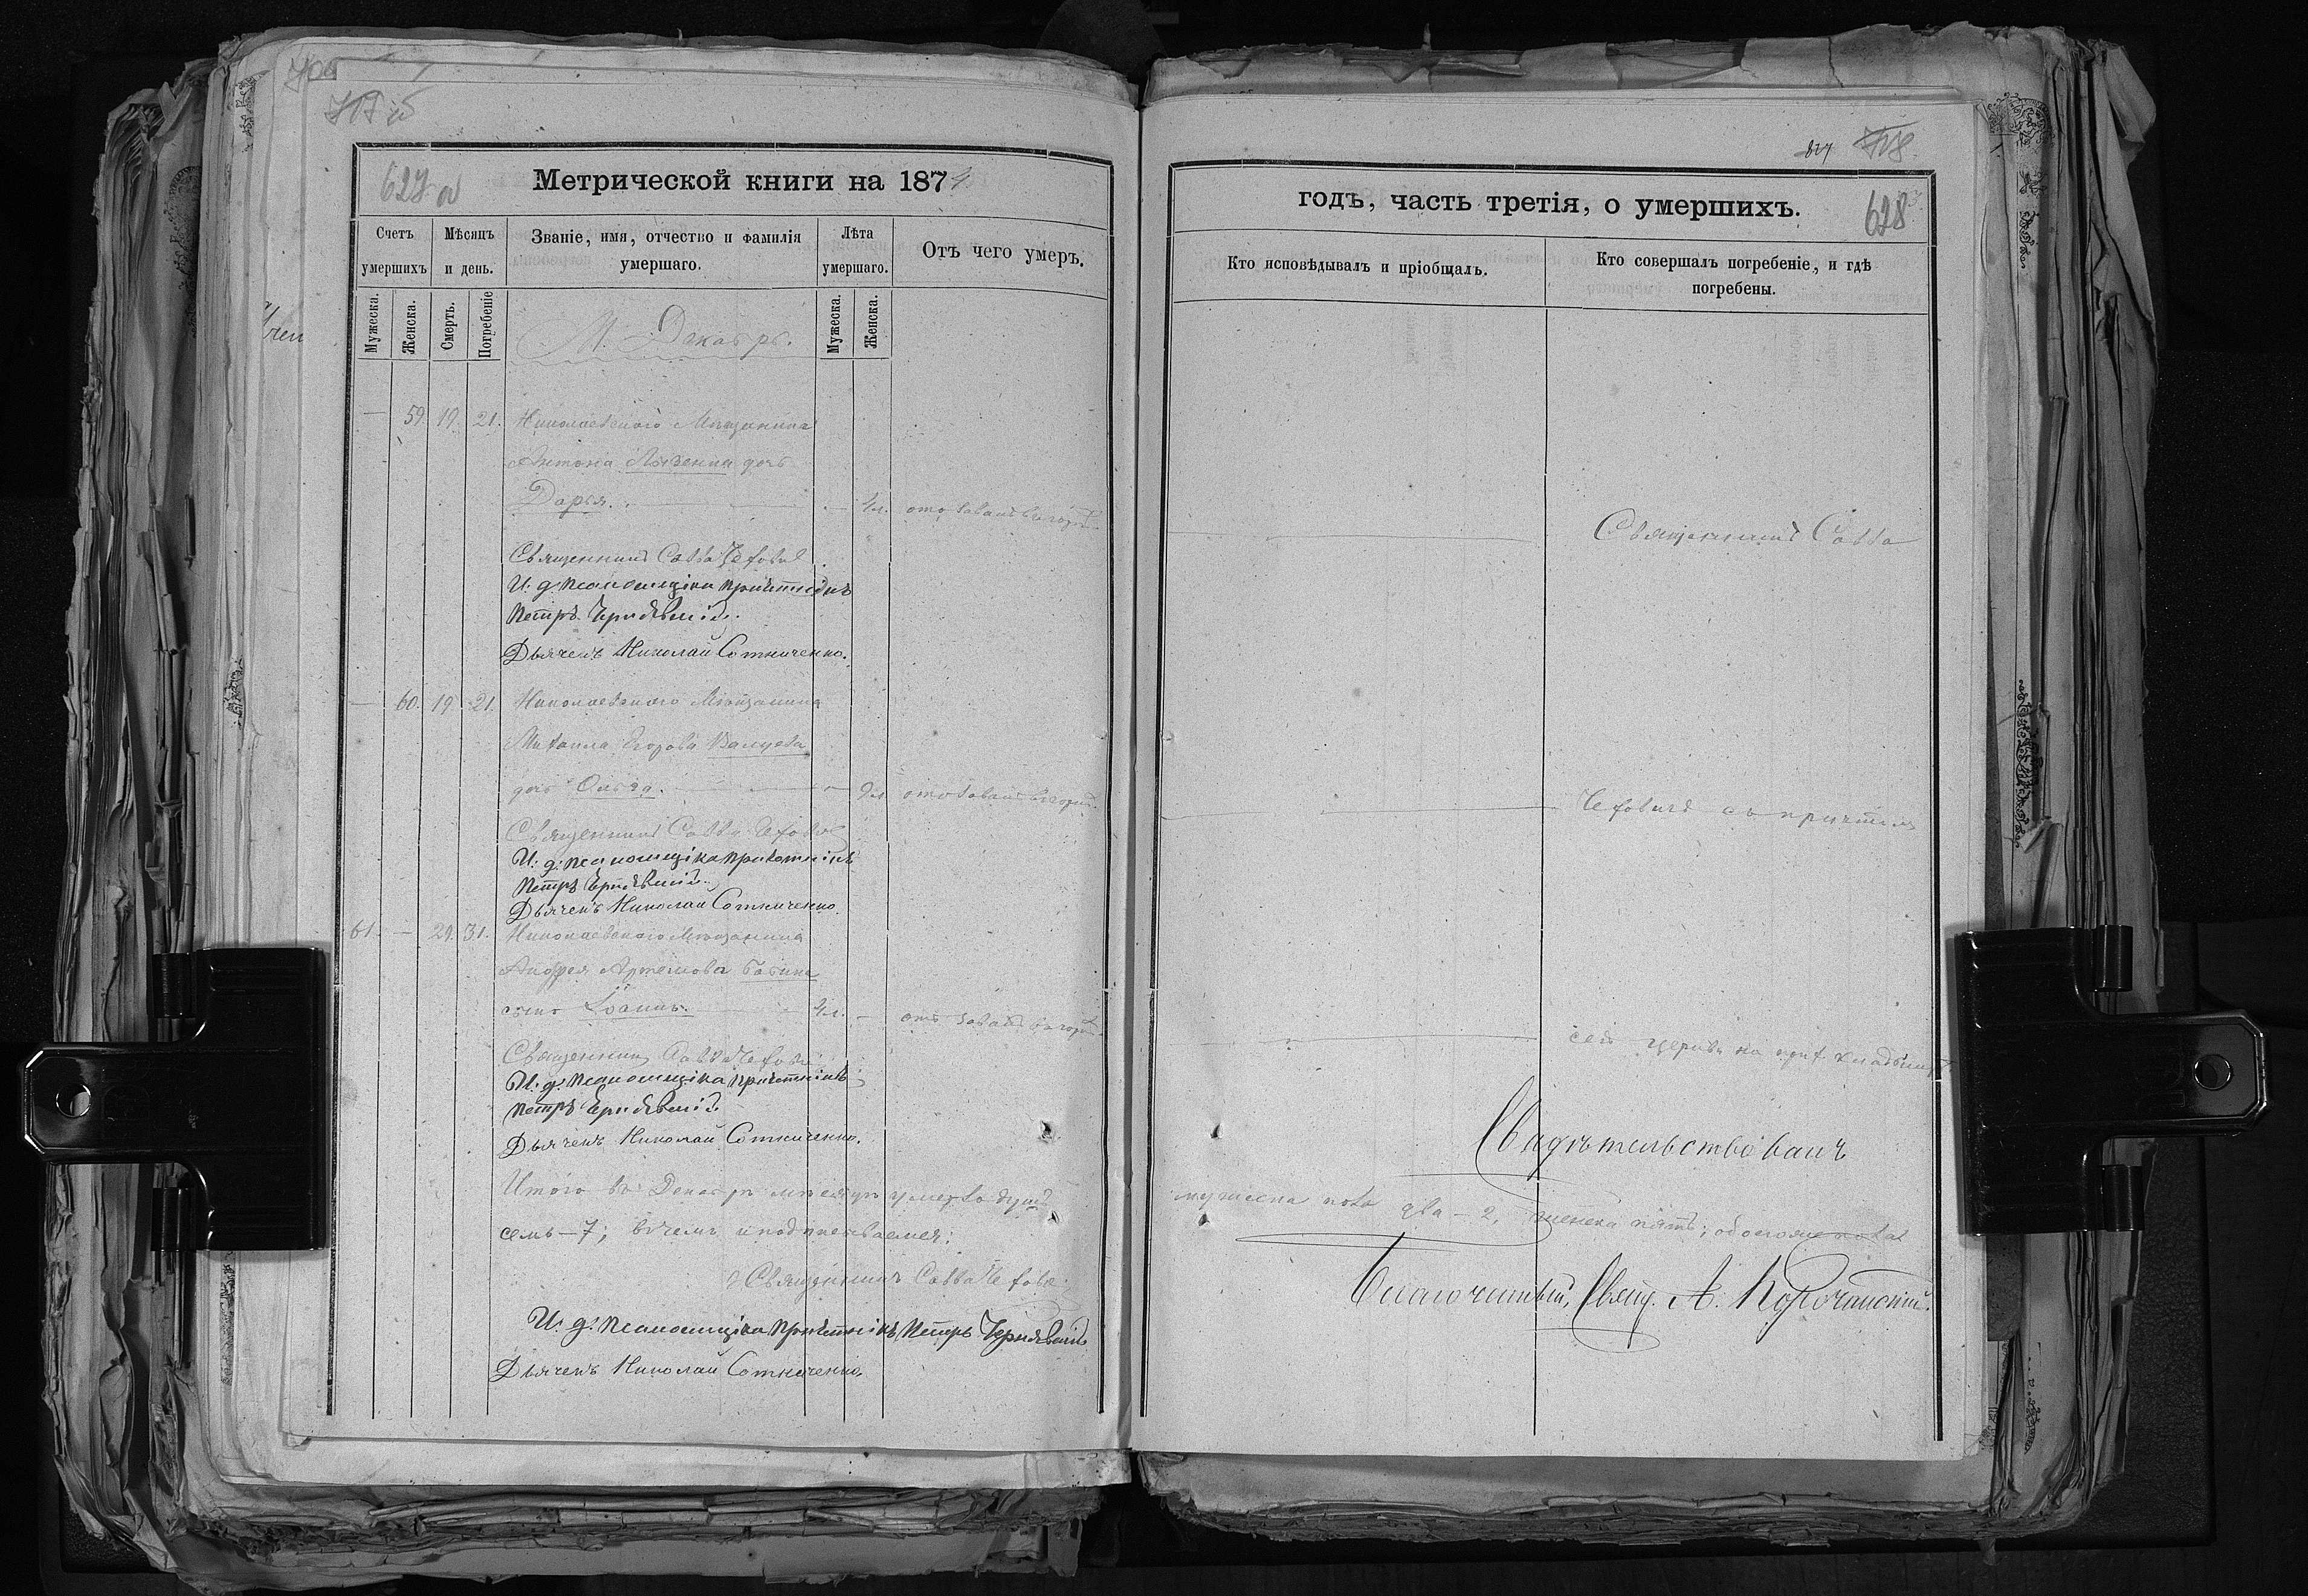 627 об
Метрической книги на 1874
Счетъ умершихъ
Мѣсяцъ и день.
Званіе, имя, отчество и фамилія умершаго.
Лѣта умершаго.
Отъ чего умеръ.
Мужеска.
Женска.
Смерть.
Погребеніе
М. Декабрь.
Мужеска.
Женска.
59. 19. 21. Николаевскаго Мѣщанина
Антона дочь
Дарья.
Священникъ Савва
И. д. псаломщика причетникъ
Петръ Чернявскій.
Дьячекъ Николай Сотниченко.
60. 19 21. Николаевскаго Мѣщанина
Михаила Егорова
дочь Ольга.
Священникъ Савва
И. д. псаломщика причетникъ
Петръ Чернявскій.
Дьячекъ Николай Сотниченко.
61. — 29. 31. Николаевскаго Мѣщанина
Андрея Артемова
сынъ Іоаннъ.
Священникъ Савва
И. д. псаломщика причетникъ
Петръ Чернявскій.
Дьячекъ Николай Сотниченко.
Итого въ Декабрѣ мѣсяцѣ умерло душъ
семь—7; въ чемъ и подписываемся:
Священникъ Савва
И. д. псаломщика причетникъ Петръ Чернявскій
Дьячекъ Николай Сотниченко.
718
628
годъ, часть третія, о умершихъ.
Кто исповѣдывалъ и пріобщалъ.
Кто совершалъ погребеніе, и гдѣ погребены.
Священникъ Савва
съ причтомъ
сей церкви на кладбищѣ
Свидѣтельствовалъ
мужеска пола два — 2, женска пять; обоего
Благочинный, Свящ. А.